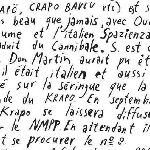 APË, CRAPO BAVEU vie) est s
us beau que jamais, avec Our
ume et l'italien Spazienza
aduit du Cannibale. S. est d
. Don Martin, aurait pu êt
il était italien et aussi
é sur la seringue que la
nde du KRAPO. En septemb
Krapo se laissera diffuse
r le NMPP. En attendant il
ut se procurer le n°2